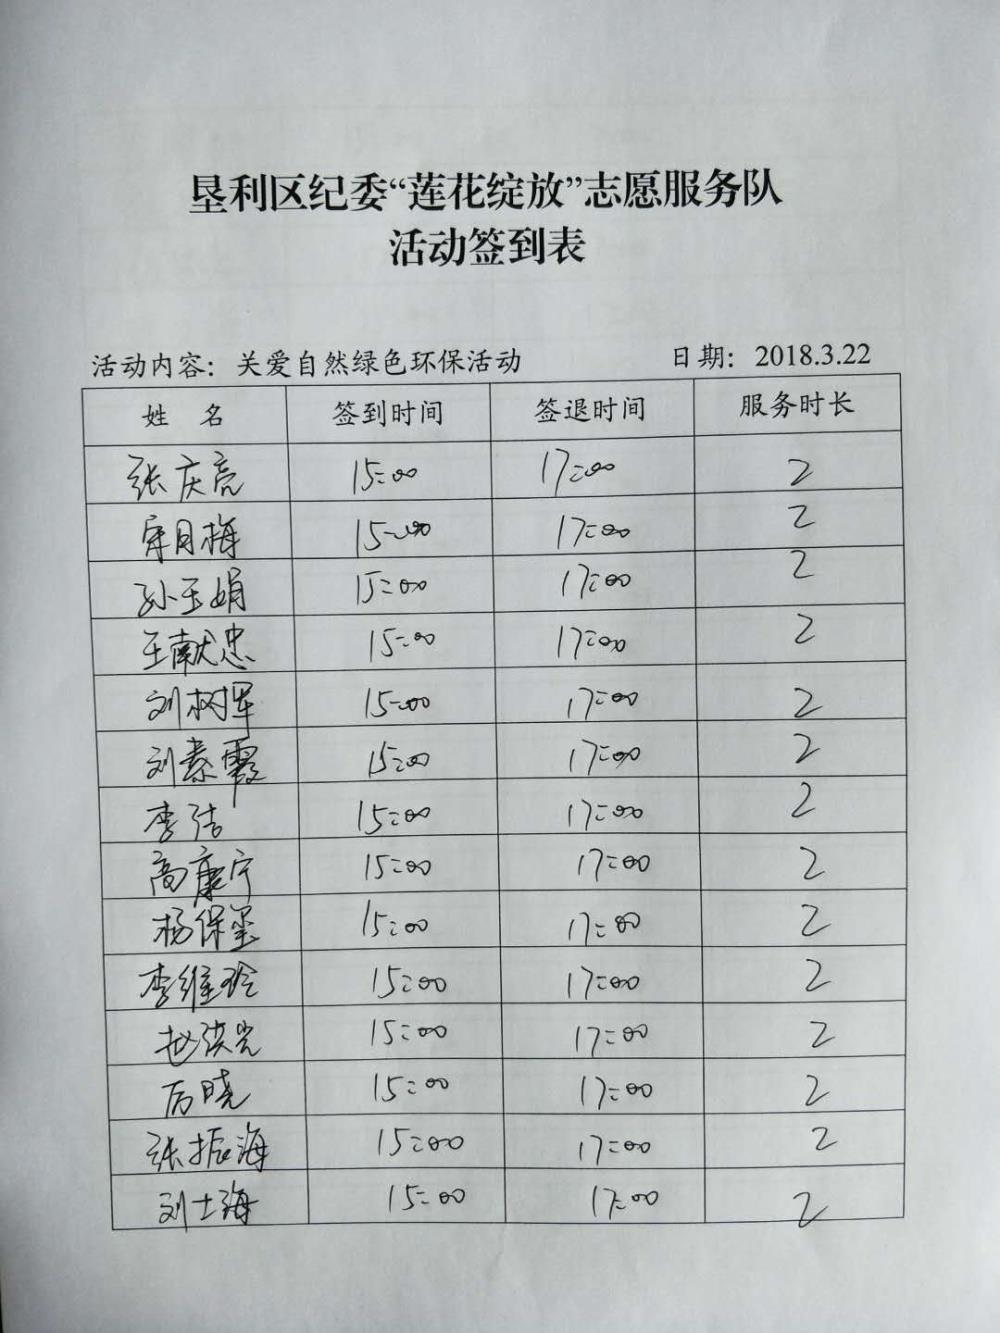 垦利区纪委“莲花绽放”志愿服务队
活动签到表
活动内容：关爱自然绿色环保活动 日期：2018.3.22
姓 名 签到时间 签退时间 服务时长
张庆亮 15:00 17:00 2
月梅 15:00 17:00 2
孙玉娟 15:00 17:00 2
王献忠 15:00 17:00 2
刘树军 15:00 17:00 2
刘素霞 15:00 17:00 2
李洁 15:00 17:00 2
高康宁 15:00 17:00 2
杨保玺 15:00 17:00 2
李维玲 15:00 17:00 2
赵洪光 15:00 17:00 2
厉晓 15:00 17:00 2
张振海 15:00 17:00 2
刘士海 15:00 17:00 2